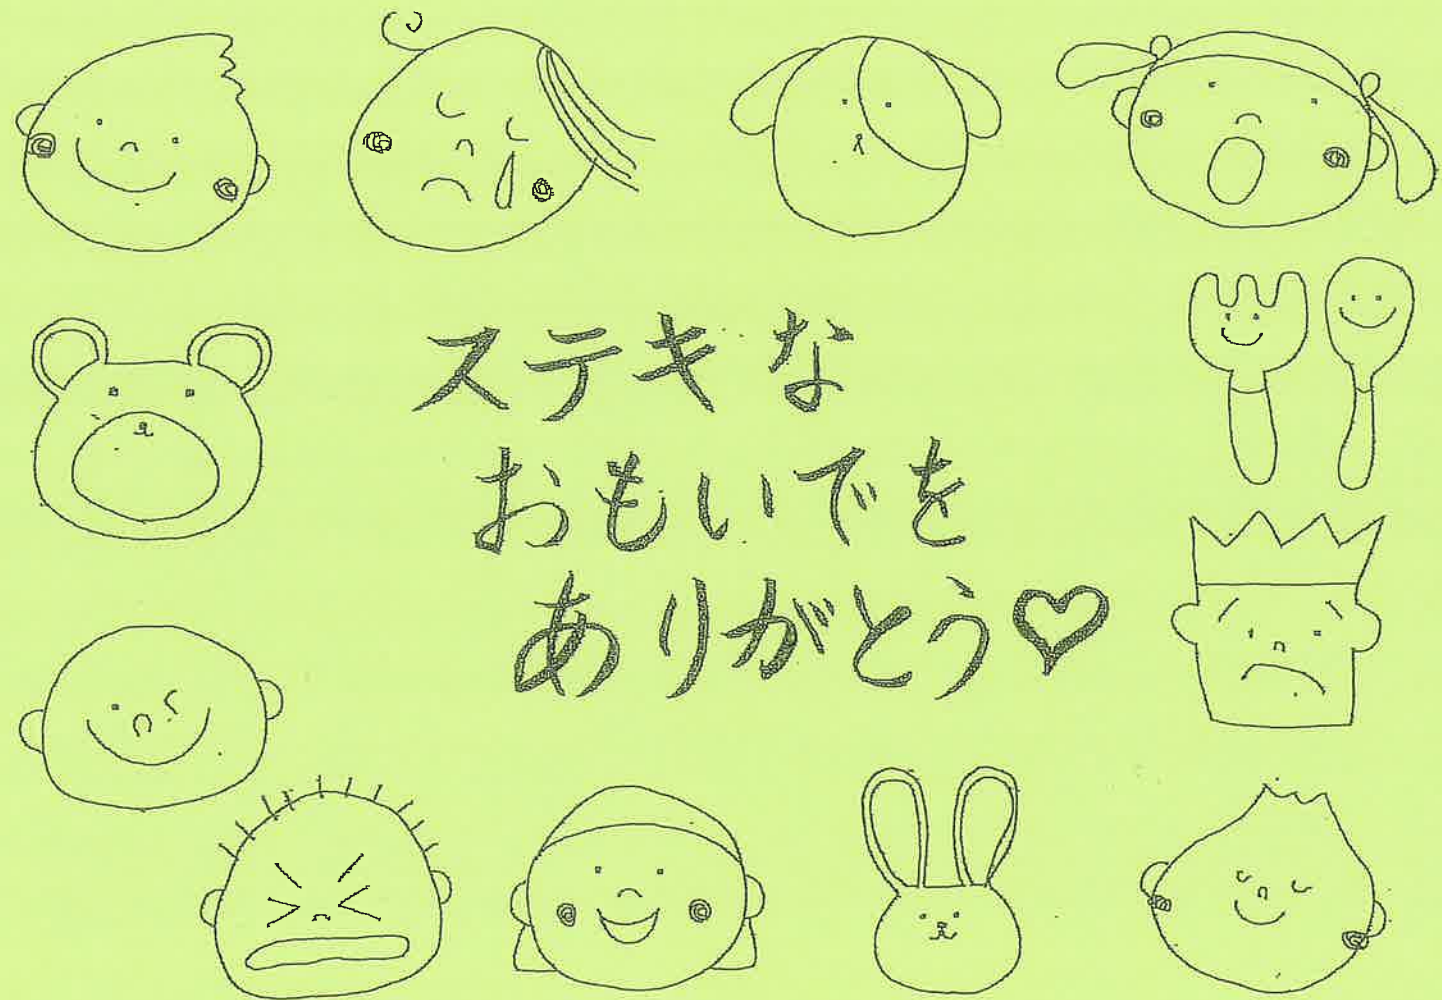 ステキな
おもいでを
ありがとう♡